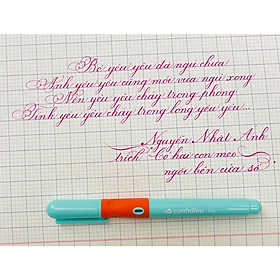 Bé yêu yêu đã ngủ chưa
Anh yêu yêu cũng mới vừa ngủ xong
Nến yêu yêu cháy trong phòng
Tình yêu yêu chảy trong lòng yêu yêu...
Nguyễn Nhật Ánh
trích "Có hai con mèo
ngồi bên cửa sổ"